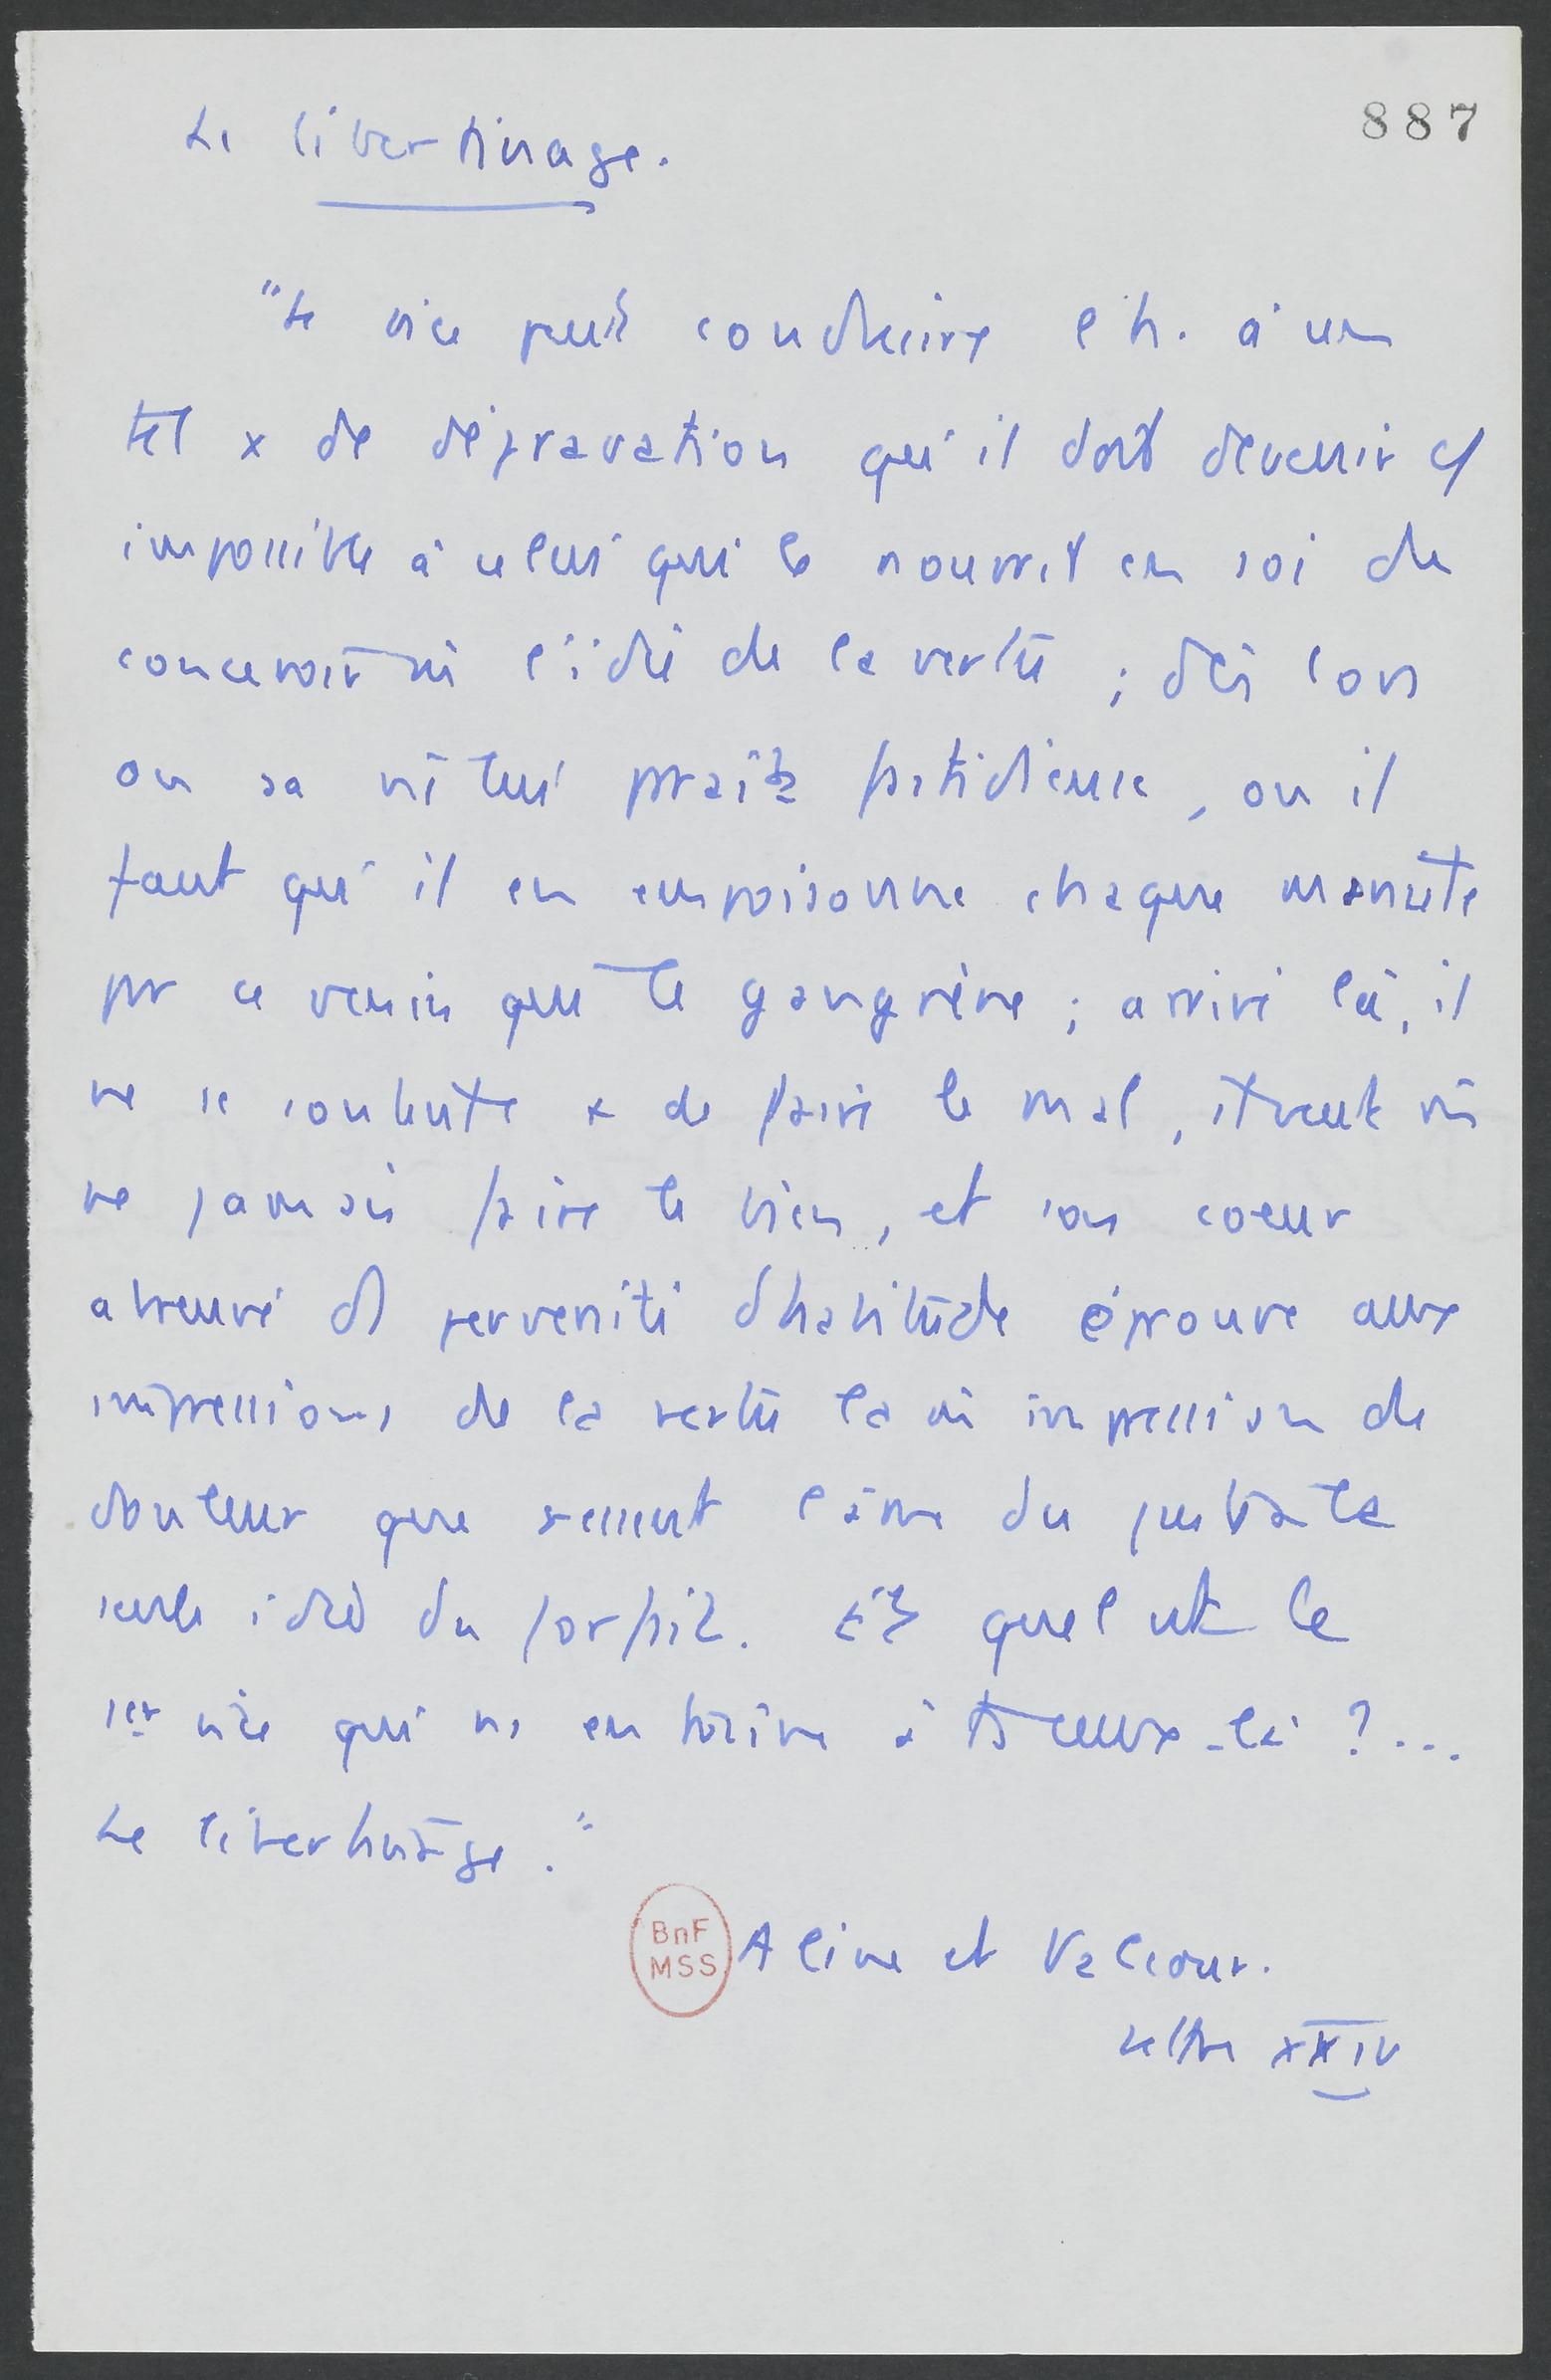 887
Le libertinage.
"Le vice peut conduire l'h. à un
tel x de dépravation qu'il doit devenir c/
impossible à celui qui le nourrit en soi de
concevoir m̂ l'idée de la vertu ; dès lors
ou sa vie lui paraît fastidieuse, ou il
faut qu'il en empoisonne chaque minute
par ce venin qui le gangrène ; arrivé là, il
ne se contente x de faire le mal, il veut m̂
ne jamais faire le bien, et son coeur
abreuvé de perversité d'habitude éprouve aux
impressions de la vertu la m̂ impression de
douleur que ressent l'âme du juste à la
seule idée du forfait. Et quel est le
1er vice qui ns entraîne à ts ceux-là ?...
Le libertinage."
BnF
MSS
Aline et Valcour.
Lettre XXIV